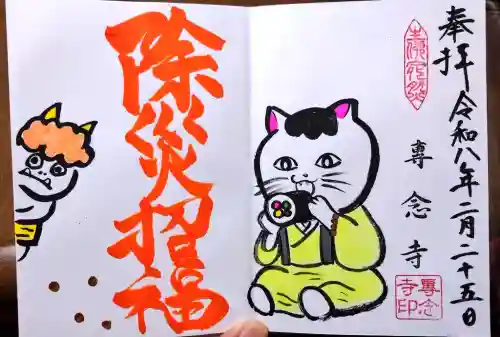 奉拝
令和八年二月二十五日
専念寺
専念
寺印
除災招福